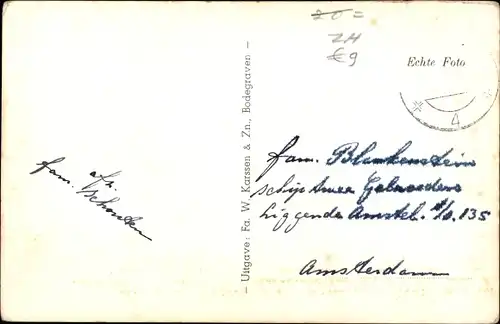 20=
ZH
€9
Echte Foto
4
- Uitgave: Fa. W. Karssen & Zn., Bodegraven -
afz.
fam. Schouten
fam. Blankenstein
schip twee Gebroeders
Liggende Amstel. t/o. 135
Amsterdam